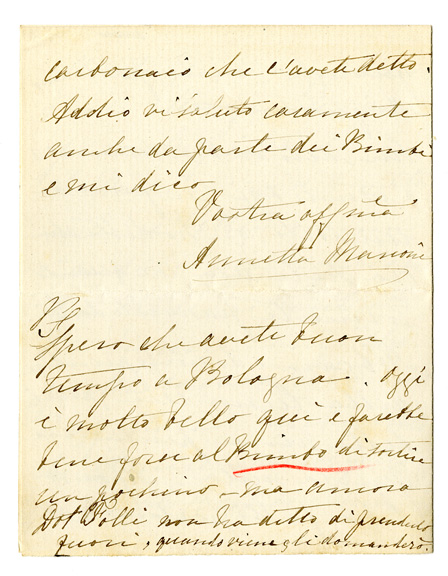 carbonaio che l'avete detto.
Addio vi saluto caramente
anche da parte dei Bimbi
e mi dico
Vostra affma
Annetta Marconi
PS
Spero che avete buon
tempo a Bologna. Oggi
è molto bello qui e farebbe
bene forse al Bimbo di sortire
un pochino - ma ancora
Dot non ha detto di prenderlo
fuori, quando viene gli domanderò.